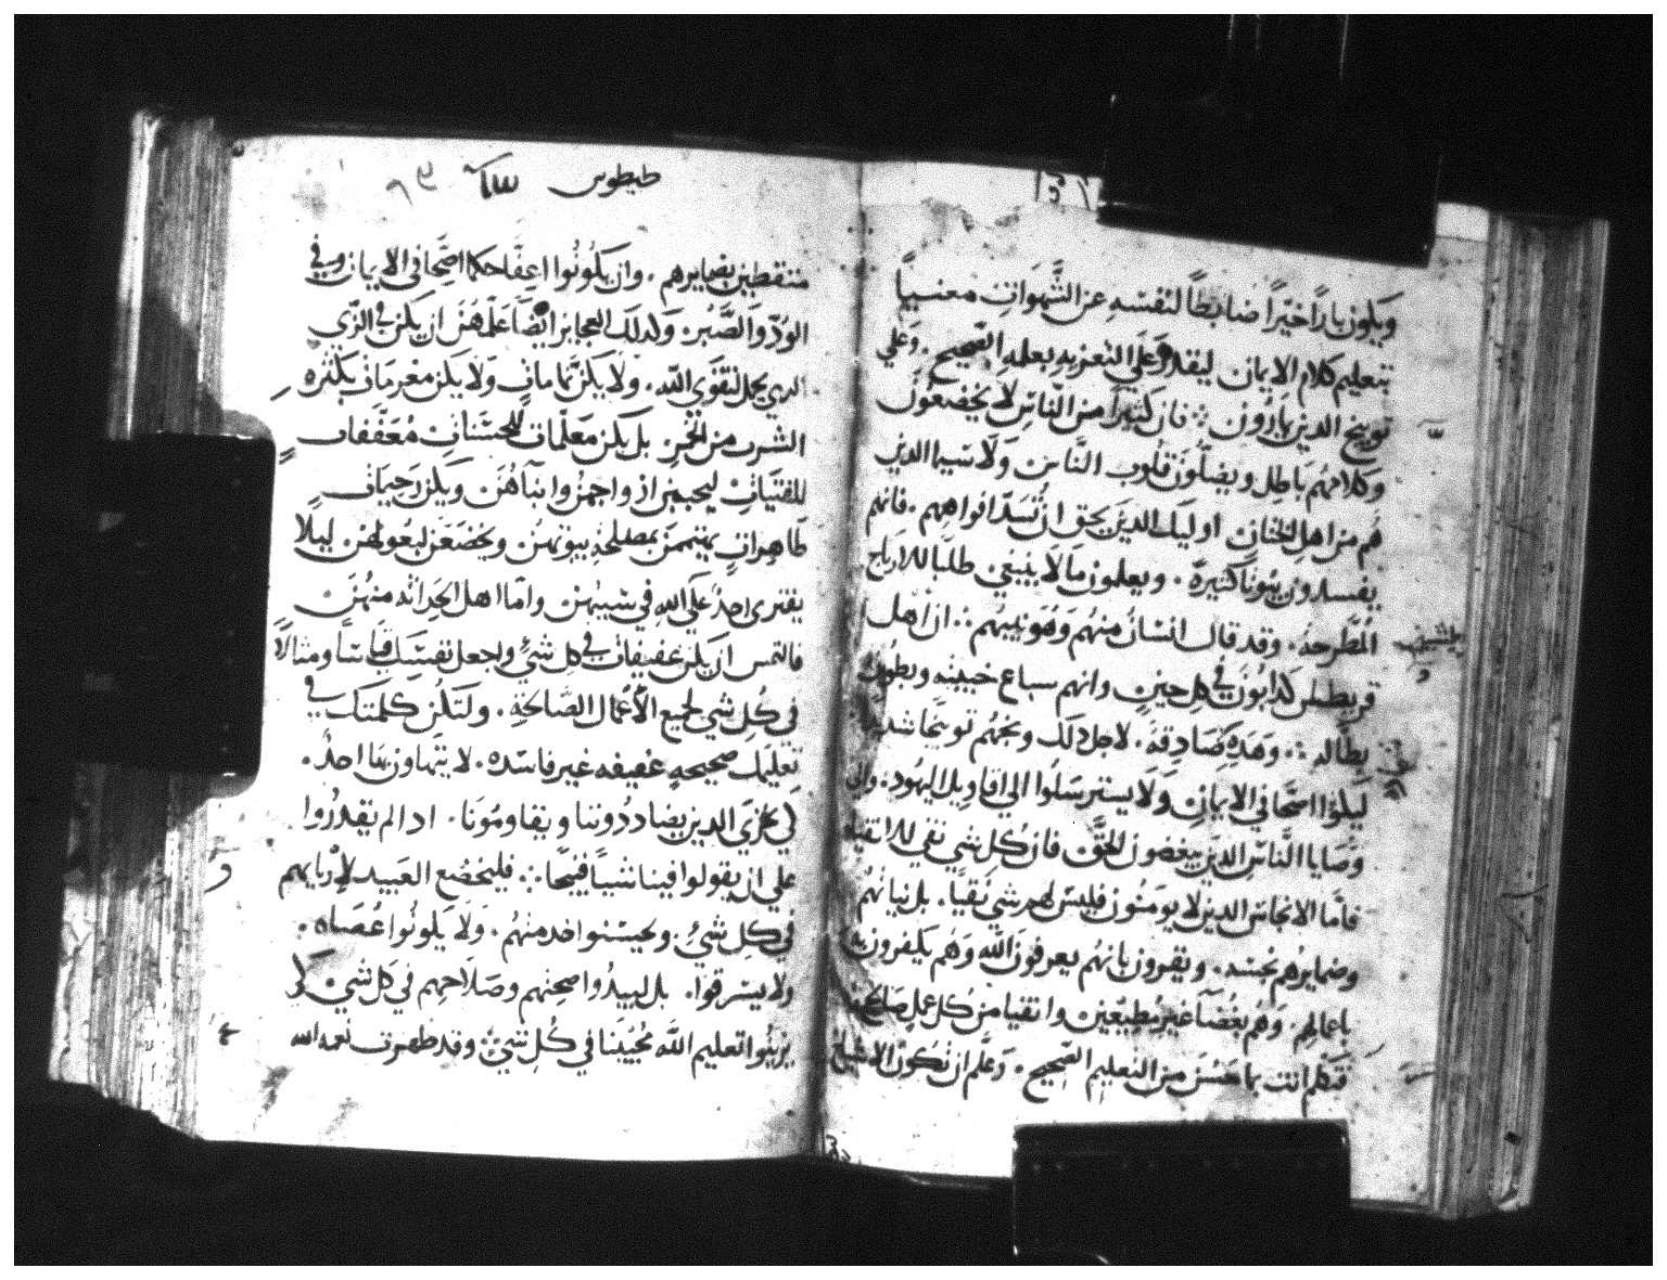 ويكون باراً خيّراً ضابطاً لنفسه عن الشَّهوات معنياً
بتعليم كلام الايمان ليقدر علي التعزيه بعلمه الصحيح . وعلي
توبيخ الدين يمارون ∴ فان كثيراً من الناس لا يخضعون
وكلامهم باطل ويضلّون قلوب النَّاس ولا سيما الدين
هم من اهل الختان اوليك الدين يحق ان تُسَدّ افواههم . فانهم
يفسدون بيوتاً كثيرة . ويعلمون ما لا ينبغي طلباً للارباح
المُطَّرحه . وقد قال انسان منهم وهو نبيهم ∴ ان اهل
قريطس كدابون في كل حين وانهم سباع خبيثه وبطون
بطَّاله ∴ وهده صادقه . لاجل دلك وبخهم توبيخاً شديداً
ليكونوا اصحّا في الايمان ولا يسترسلوا الي اقاويل اليهود . والي
وصايا النَّاس الدين يبغضون الحقّ فان كل شي نقي للاتقيا
فاما الانجاس الدين لا يومنون فليس لهم شي نقياً . بل نياتهم
وضمايرهم نجسه . ويقرون بانهم يعرفون الله وهم يكفرون به
باعمالهم . وهم بغضا غير مطيعين وانقيا من كل عمل صالح
فتكلم انت بما حسن من التعليم الصحيح . وعلّم ان تكون الاشياخ
طيطوس
متيقظين بضمايرهم . وان يكونوا اعفّا حكما اصحّا في الايمان وفي
الودّ والصَّبر . وكدلك العجايز ايضاً علّمهن ان يكن في الزّي
الدي يجمل لتقوي الله . ولا يكن نمّامات ولا يكن مغرمات بكثره
الشرب من الخمر بل يكن معلّمات للحسنات مُعَفِّفات
للفتيات ليحببن ازواجهن وابناهن ويكن رحيمات
طاهرات يهتممن بمصلحة بيوتهن ويخضعن لبعولهن ليلا
يفتري احد علي الله في سببهن واما اهل الحداثه منهن
فالتمس ان يكن عفيفات في كل شيٍ واجعل نفسك قياساً ومثالاً
في كل شي لجميع الاعمال الصَّالحة . ولتكن كلمتك في
تعليمك صحيحه عفيفه غير فاسده . لا يتهاون بها احد .
لكي يخزي الدين يضاددوننا ويقاومونا . ادا لم يقدروا
علي ان يقولوا فينا شياً قبيحاً ∴ فليخضع العبيد لاربابهم
في كل شيٍ . ويحسنوا خدمتهم . ولا يكونوا عُصَاه .
ولا يسرقوا . بل ليبدوا صحتهم وصلاحهم في كل شي كي
يزينوا تعليم الله محيينا في كل شي ∴ وقد ظهرت نعمه الله